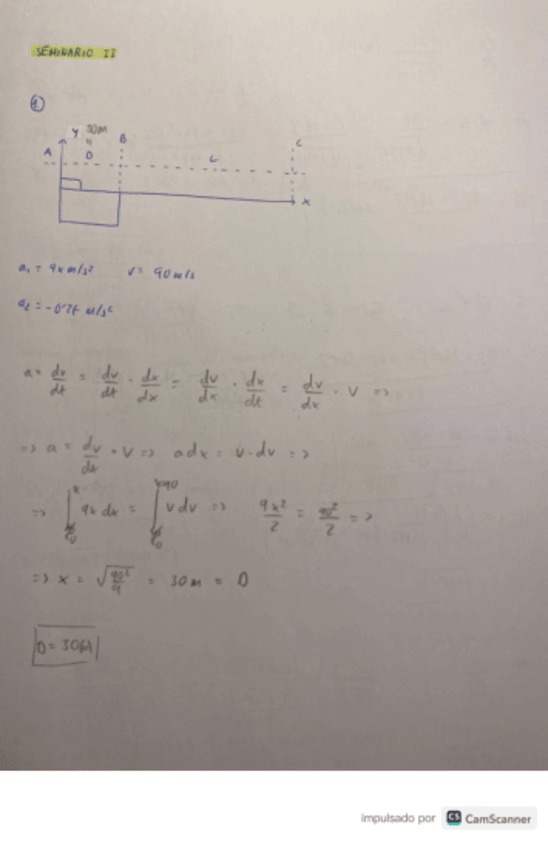 SEMINARIO II
1
Y 30m B C
A D L
X
a₁ = 9x m/s² v = 90 m/s
a₂ = -0'7t m/s²
a = dv/dt = dv/dt · dx/dx = dv/dx · dx/dt = dv/dx · v =>
=> a = dv/dx · v => a dx = v · dv =>
=> ∫₀ˣ 9x dx = ∫₀⁹⁰ v dv => 9x²/2 = 90²/2 =>
=> x = √(90²/9) = 30 m = D
D = 30 m
impulsado por CS CamScanner